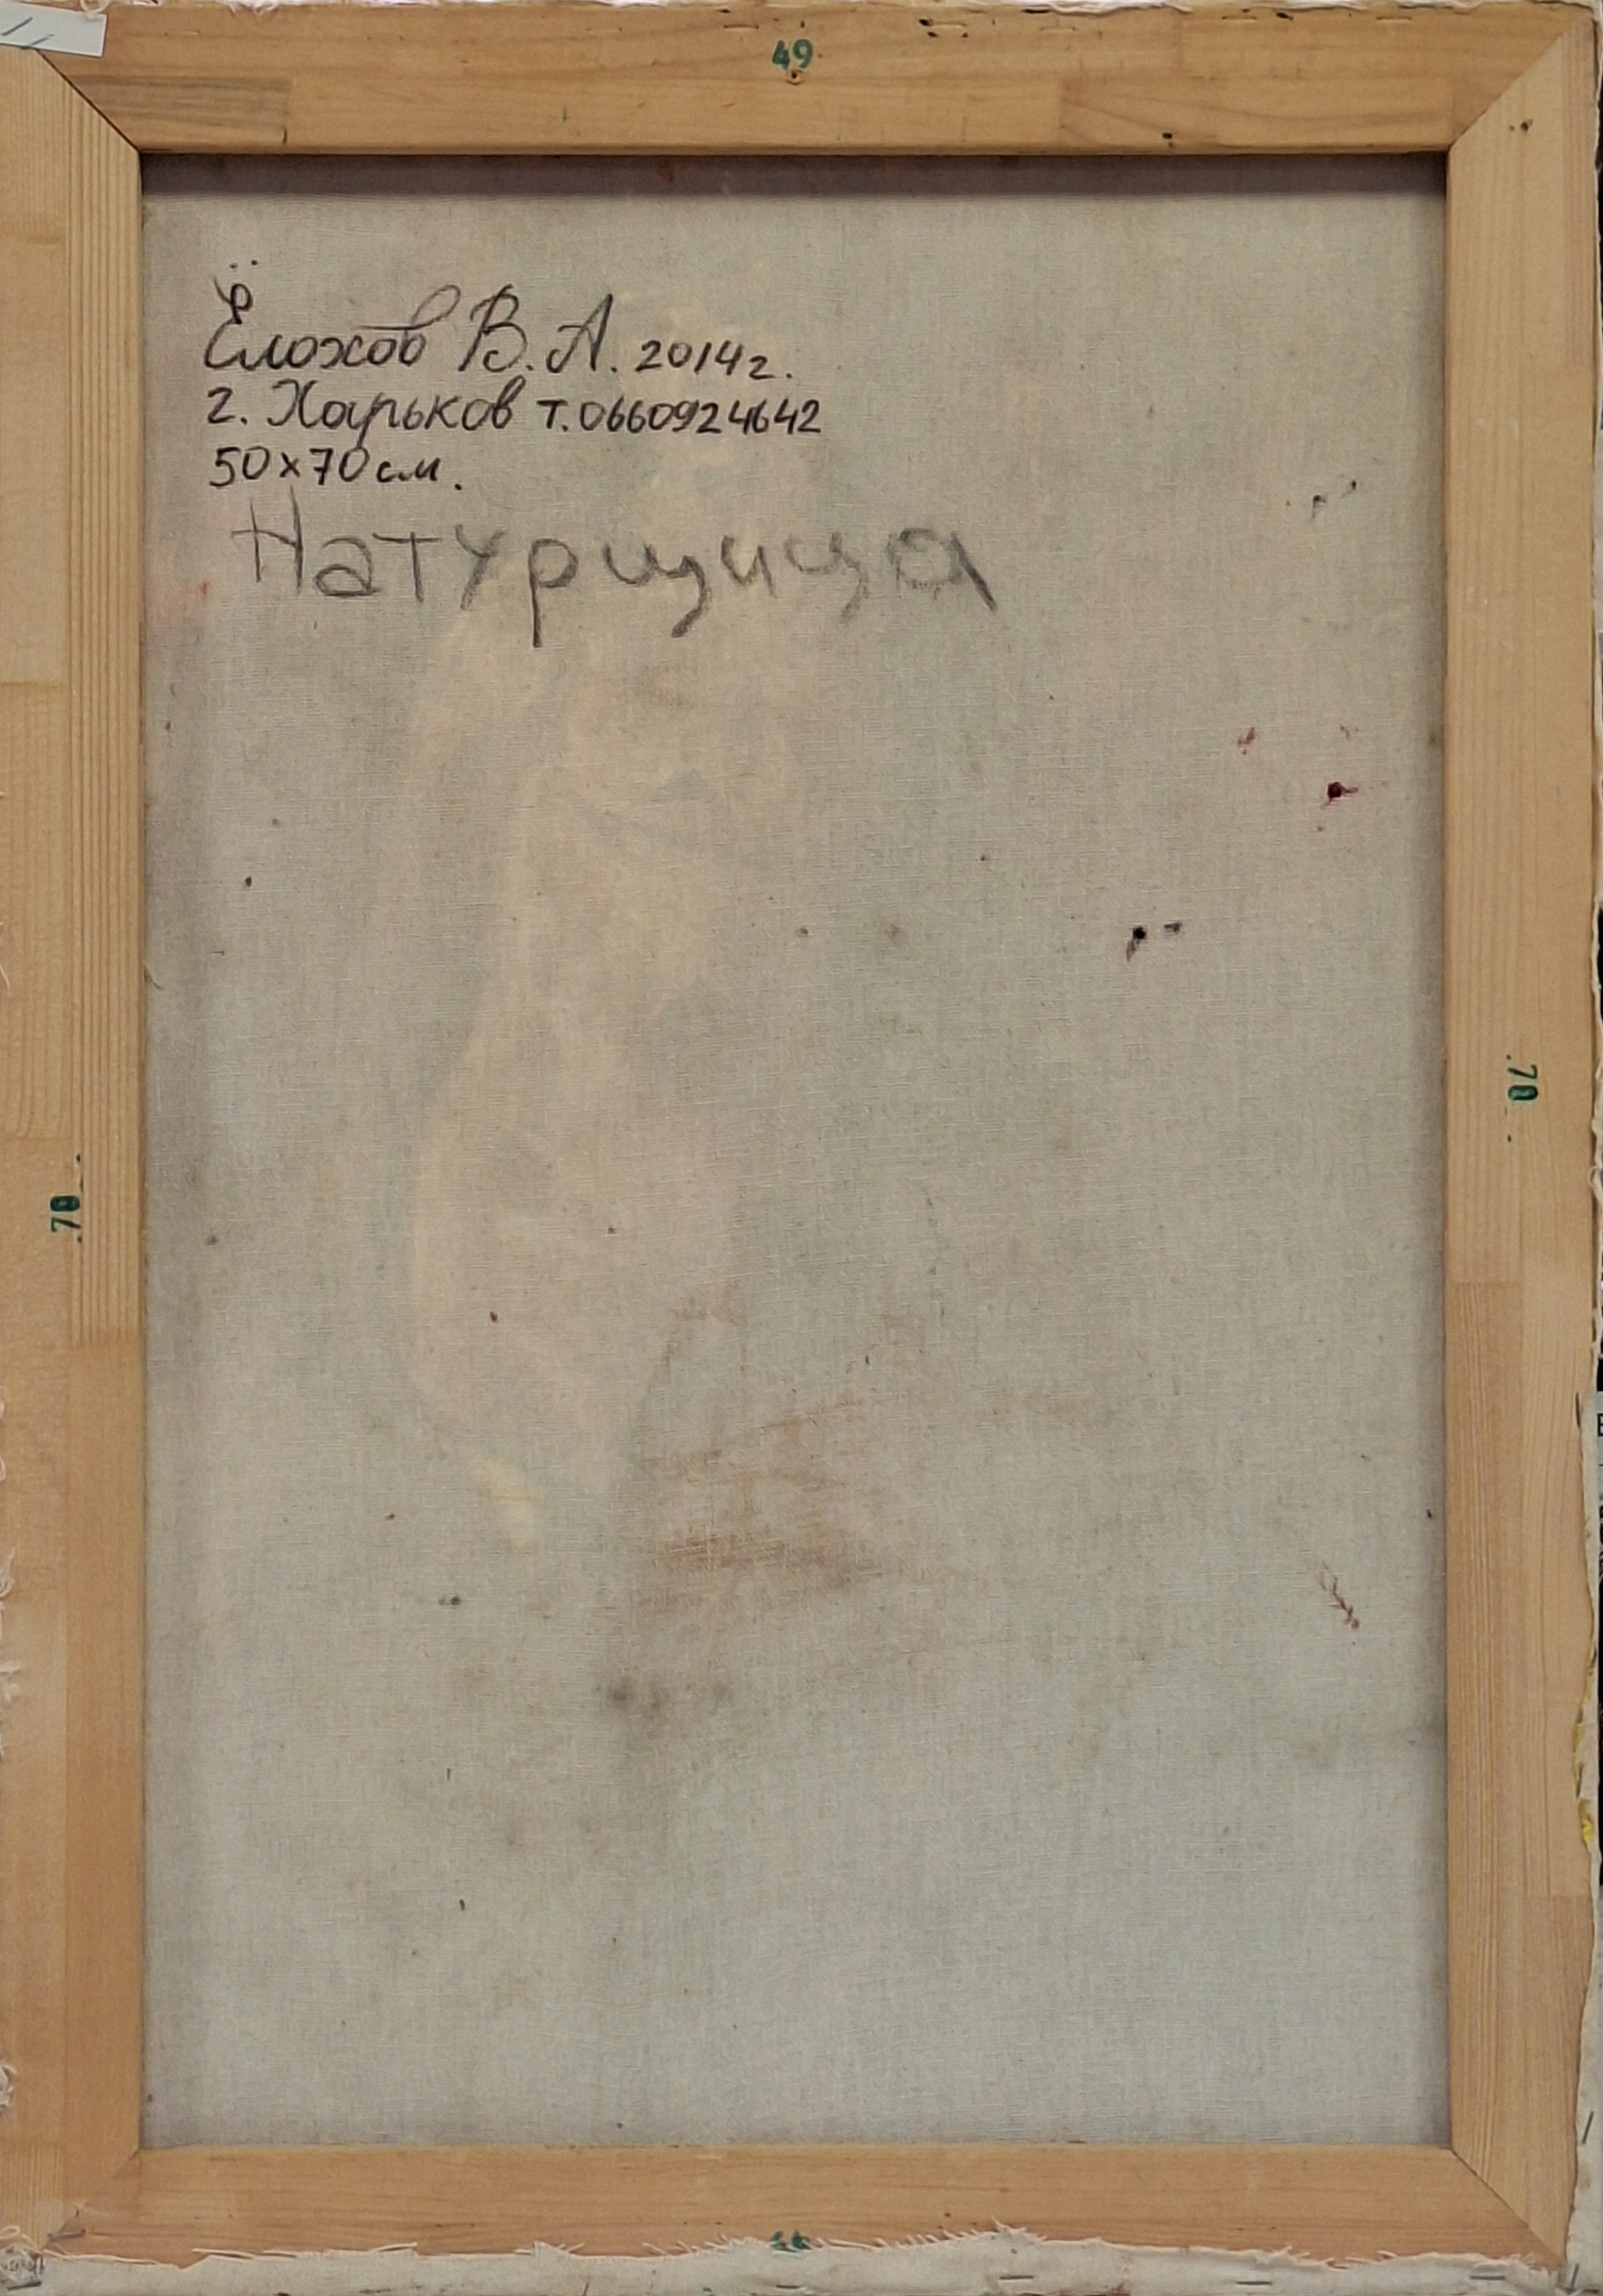 49
Ёлохов В. А. 2014г.
г. Харьков т. 0660924642
50х70см.
Натурщица
.70.
.70.